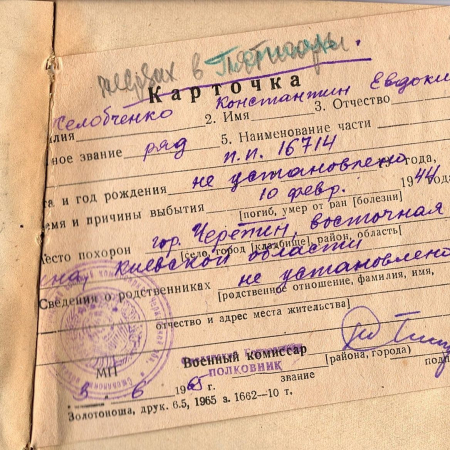 в Пятигоры
Карточка
Желобченко Константин Евдоки
лия 2. Имя 3. Отчество
ное звание ряд 5. Наименование части
п.п. 16714
та и год рождения не установлено года,
емя и причины выбытия 10 февр. 1944
[погиб, умер от ран [болезни]
есто похорон гор. Черепин, восточная
[село, город [кладбище] район, область]
на, Киевской области
Сведения о родственниках не установлено
[родственное отношение, фамилия, имя,
отчество и адрес места жительства]
Военный комиссар
ПОЛКОВНИК [района, города)
МП звание подп
5. 6 1965 г.
Золотоноша, друк. 6.5, 1965 з. 1662—10 т.